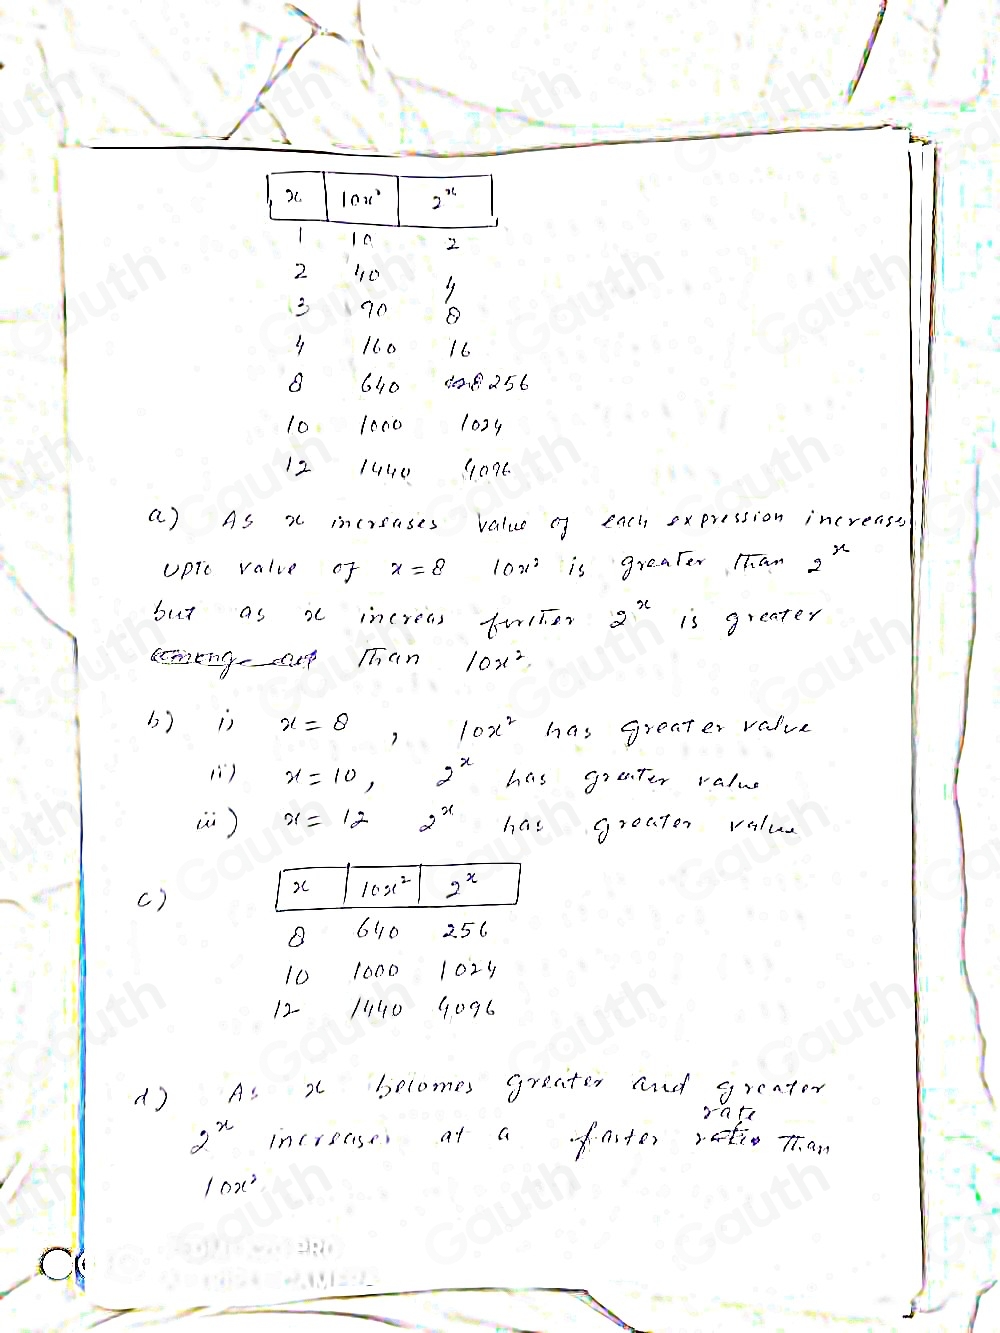 x 10x² 2^x
1 10 2
2 40 4
3 90 8
4 160 16
8 640 256
10 1000 1024
12 1440 4096
a) As x increases value of each expression increases
upto value of x = 8 10x² is greater than 2^x
but as x increas further 2^x is greater
than 10x².
b) i) x = 8 , 10x² has greater value
ii) x = 10, 2^x has greater value
iii) x = 12 2^x has greater value
c) x 10x² 2^x
8 640 256
10 1000 1024
12 1440 4096
d) As x becomes greater and greater
rate
2^x increases at a faster ratio than
10x²
Gauth